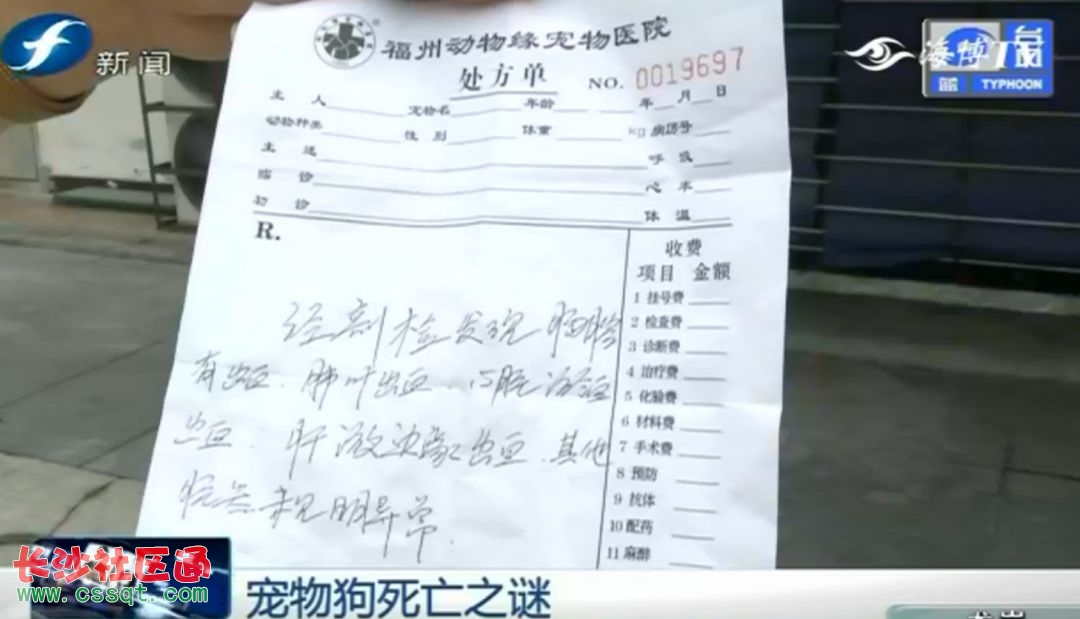 新闻
海博TV
台风
蓝 TYPHOON
福州动物缘宠物医院
处方单 NO. 0019697
主人 宠物名 年龄 年 月 日
动物种类 性别 体重 kg 病历号
主述 呼吸
临诊
初诊 体温
R. 收费
项目 金额
1 挂号费
2 检查费
3 诊断费
4 治疗费
5 化验费
6 材料费
7 手术费
8 预防
9 抗体
10 配药
11 麻醉
经剖检发现胸腔
有出血、肺叶出血、心脏
出血、肝 边缘出血、其他
未见明异常.
长沙社区通
www.cssqt.com
宠物狗死亡之谜